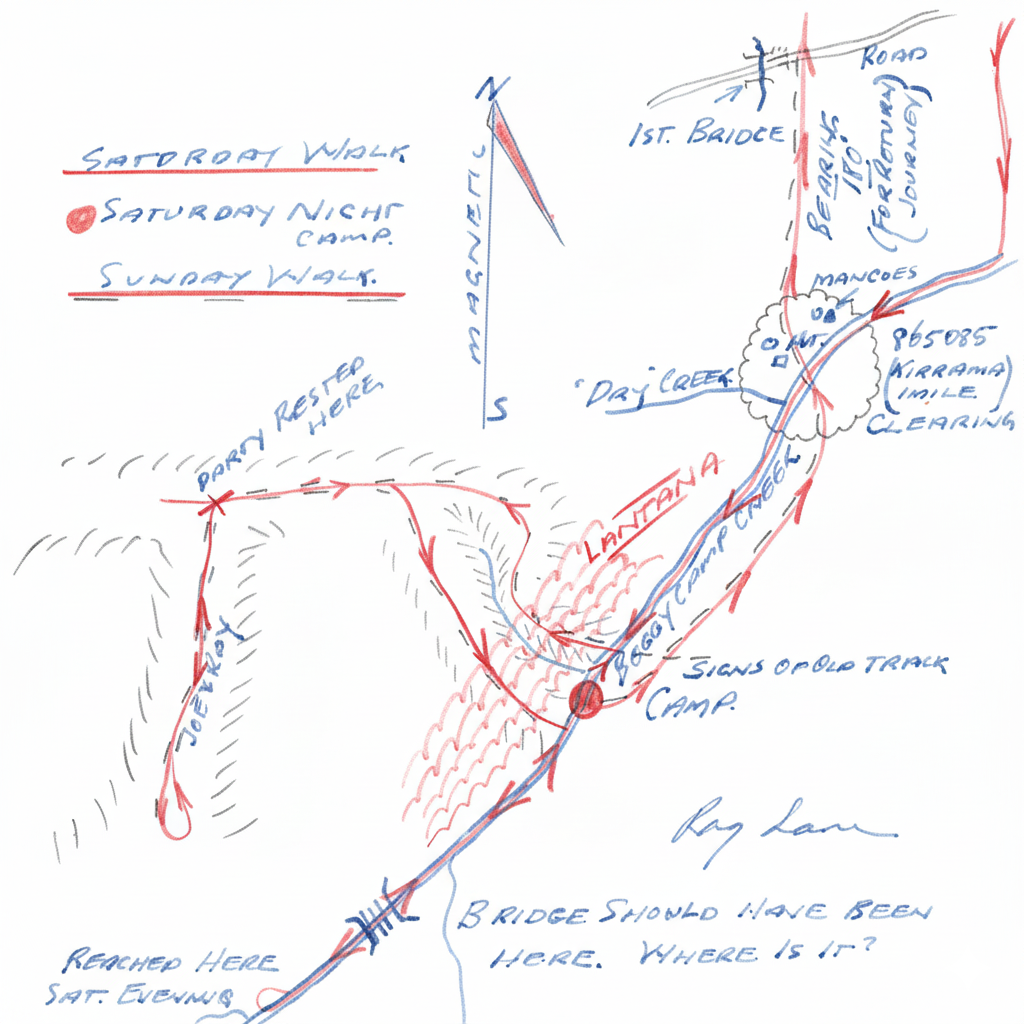 SATURDAY WALK
SATURDAY NIGHT
CAMP.
SUNDAY WALK.
N
MAGNETIC
S
1ST. BRIDGE
ROAD
BEARING
180°.
(FOR RETURN
JOURNEY)
MANGOES
HUT.
865085
(KIRRAMA)
1 MILE
CLEARING
"DRY" CREEK
PARTY RESTED
HERE
LANTANA
BOGGY CAMP CREEK
JOE & ROY
SIGNS OF OLD TRACK
CAMP.
Ray Lane
BRIDGE SHOULD HAVE BEEN
HERE. WHERE IS IT?
REACHED HERE
SAT. EVENING